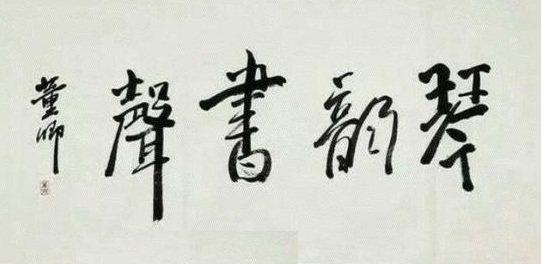 琴韵書聲
董卿